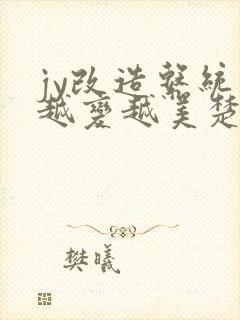 jy改造系統
越變越美楚
樊曦